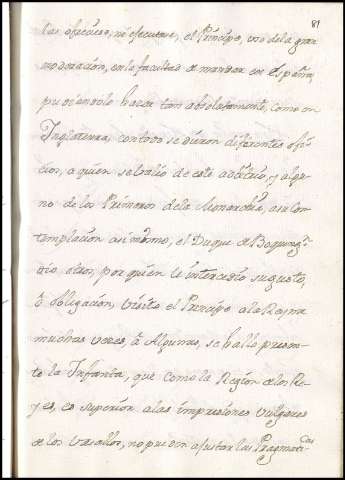 81
las ofreciese, ni ofreciese, el Principe, usó de la gran
moderación, en la facultad de mandar en España,
pudiendolo hacer tan absolutamente, como en
Inglaterra, con todo se dieron diferentes ofi-
cios, a quien se balió de este advitrio, y algu-
no de los Primeros de la Monarchia, a su con
templacion asi mismo, el Duque de Boquing.m
dió otros, por quien le intercedio su gusto,
ó obligación, visitó el Principe a la Reyna
muchas veces, à Algunas, se halló presen-
te la Infanta, que como la Region de los Re-
yes, es superior a las impresiones vulgares
de los Vasallos, no pueden ajustar las Pragmati-cas